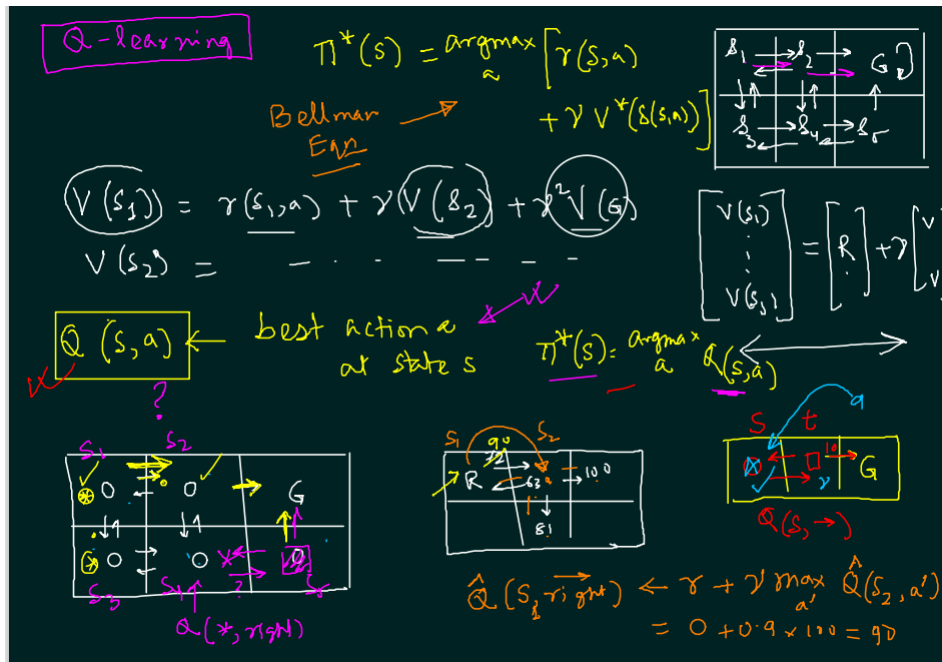 Q-learning
π*(S) = argmax a [r(s,a)
+ γ V*(δ(s,a))]
Bellman
Eqn
S1 S2 G
S3 S4 S5
V(S1) = r(S1,a) + γ V(S2) + γ² V(G)
V(S2) =
[V(S1) ⋮ V(S5)] = [R] + γ [V
Q(S,a) ← best action a
at state s
π*(S) = argmax a Q(s,a)
?
S1 S2
0 0 G
0 0 0
S3 S4 S5
Q(*, right)
S1 90 S2
72
R 63 100
81
S t a
10
γ G
Q(S, →)
Q̂(S1, right) ← r + γ max a' Q̂(S2, a')
= 0 + 0.9 × 100 = 90